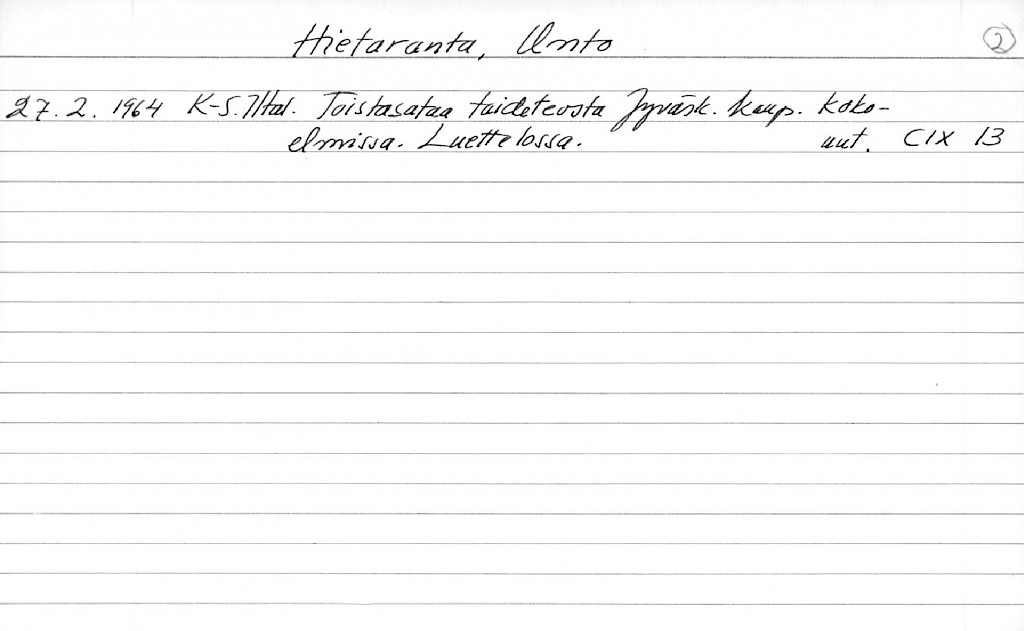 Hietaranta, Unto 2
27. 2. 1964 K-S. Iltal. Toistasataa taideteosta Jyväsk. kaup. koko-
elmissa. Luettelossa. uut. CIX 13